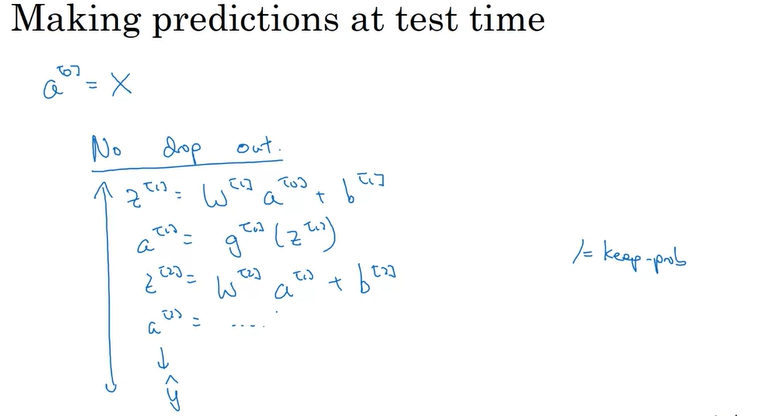 Making predictions at test time
a^[0] = X
No drop out.
z^[1] = W^[1] a^[0] + b^[1]
a^[1] = g^[1] (z^[1])
z^[2] = W^[2] a^[1] + b^[2]
a^[2] = ....
↓
ŷ
/= keep-prob